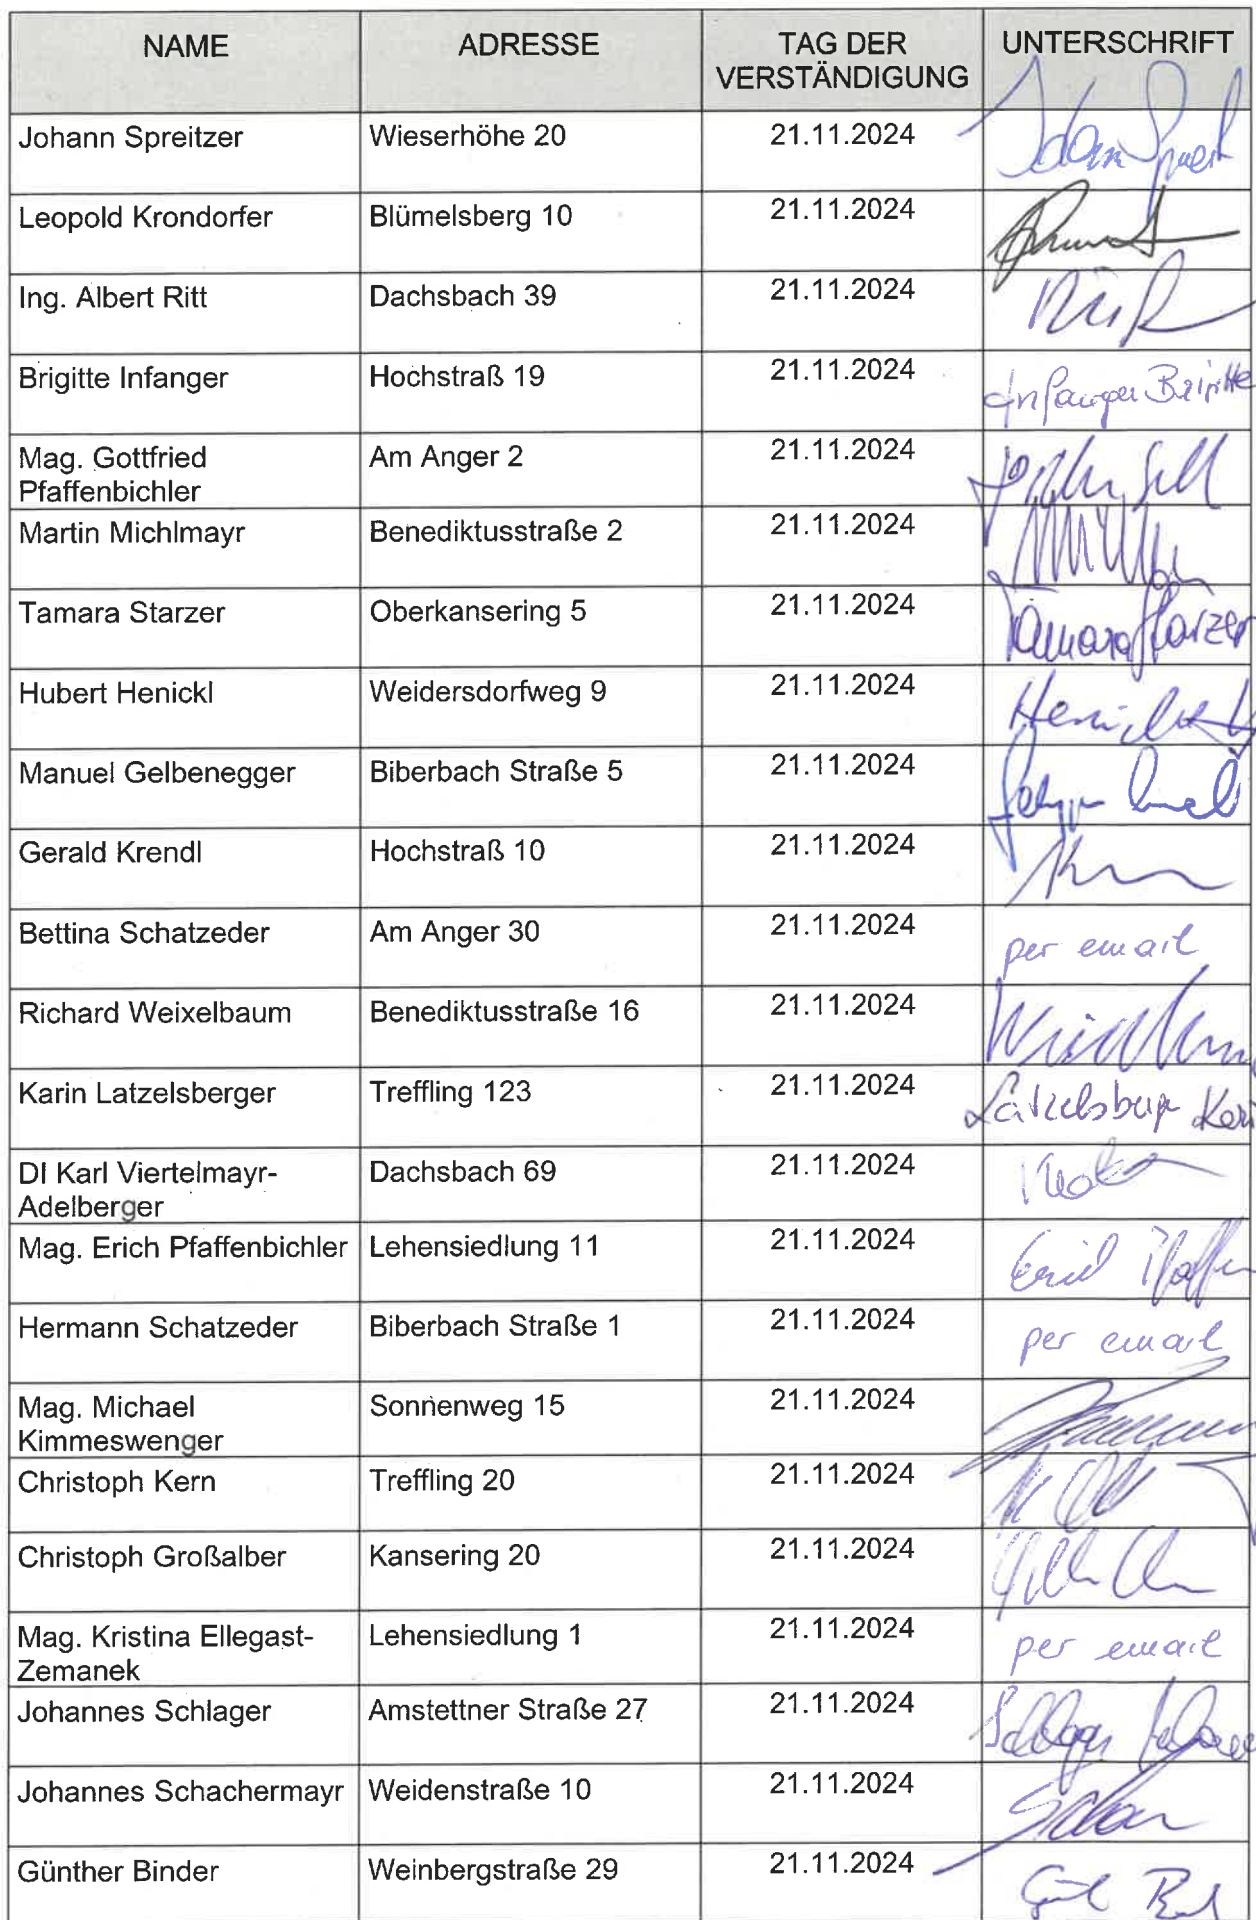 NAME ADRESSE TAG DER VERSTÄNDIGUNG UNTERSCHRIFT
Johann Spreitzer Wieserhöhe 20 21.11.2024
Leopold Krondorfer Blümelsberg 10 21.11.2024
Ing. Albert Ritt Dachsbach 39 21.11.2024
Brigitte Infanger Hochstraß 19 21.11.2024 Infanger Brigitte
Mag. Gottfried Am Anger 2 21.11.2024
Pfaffenbichler
Martin Michlmayr Benediktusstraße 2 21.11.2024
Tamara Starzer Oberkansering 5 21.11.2024 Tamara Starzer
Hubert Henickl Weidersdorfweg 9 21.11.2024
Manuel Gelbenegger Biberbach Straße 5 21.11.2024
Gerald Krendl Hochstraß 10 21.11.2024
Bettina Schatzeder Am Anger 30 21.11.2024 per email
Richard Weixelbaum Benediktusstraße 16 21.11.2024
Karin Latzelsberger Treffling 123 21.11.2024
DI Karl Viertelmayr- Dachsbach 69 21.11.2024
Adelberger
Mag. Erich Pfaffenbichler Lehensiedlung 11 21.11.2024
Hermann Schatzeder Biberbach Straße 1 21.11.2024 per email
Mag. Michael Sonnenweg 15 21.11.2024
Kimmeswenger
Christoph Kern Treffling 20 21.11.2024
Christoph Großalber Kansering 20 21.11.2024
Mag. Kristina Ellegast- Lehensiedlung 1 21.11.2024 per email
Zemanek
Johannes Schlager Amstettner Straße 27 21.11.2024
Johannes Schachermayr Weidenstraße 10 21.11.2024
Günther Binder Weinbergstraße 29 21.11.2024